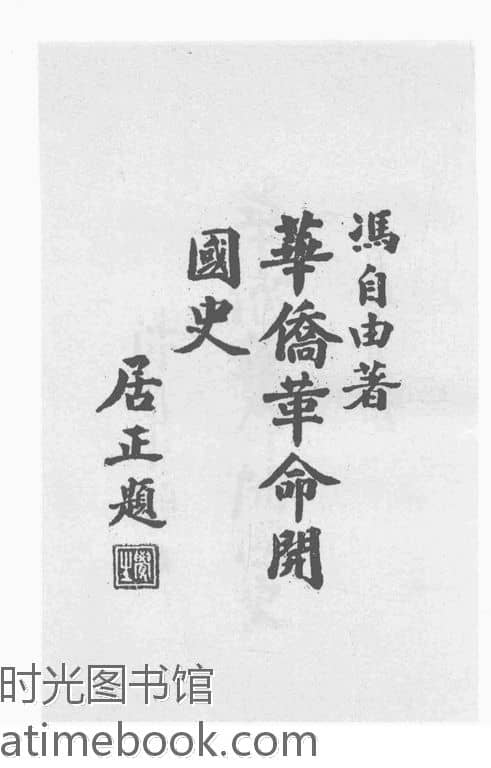 馮自由著
華僑革命開
國史
居正題
覺生
时光图书馆
atimebook.com